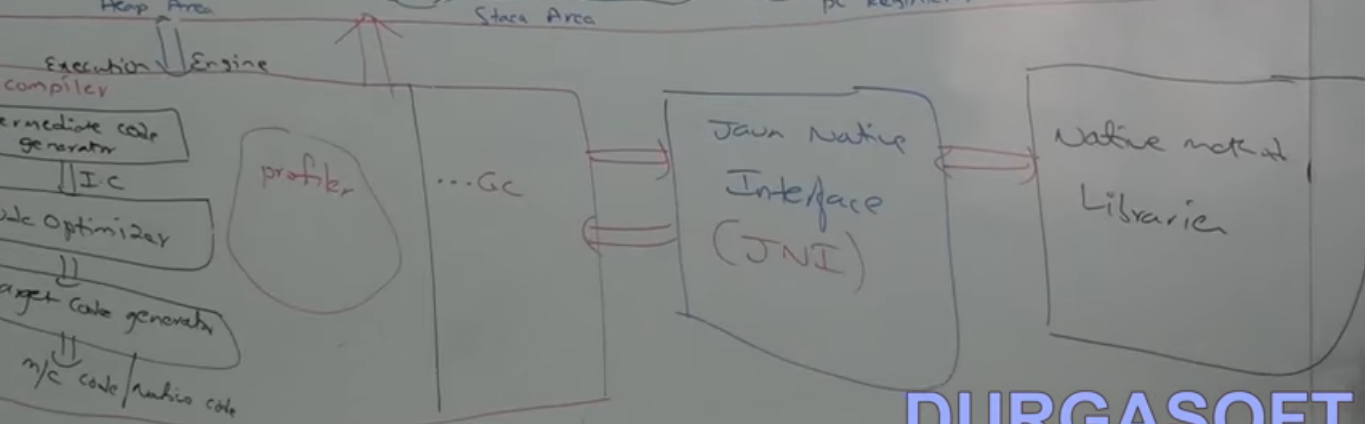 Heap Area
Staca Area
PC Register
Execution Engine
compiler
ermediate code
generator
I.C
ode Optimizer
arget code generator
m/c code/native code
profiler
...GC
Java Native
Interface
(JNI)
Native method
Libraries
DURGASOFT